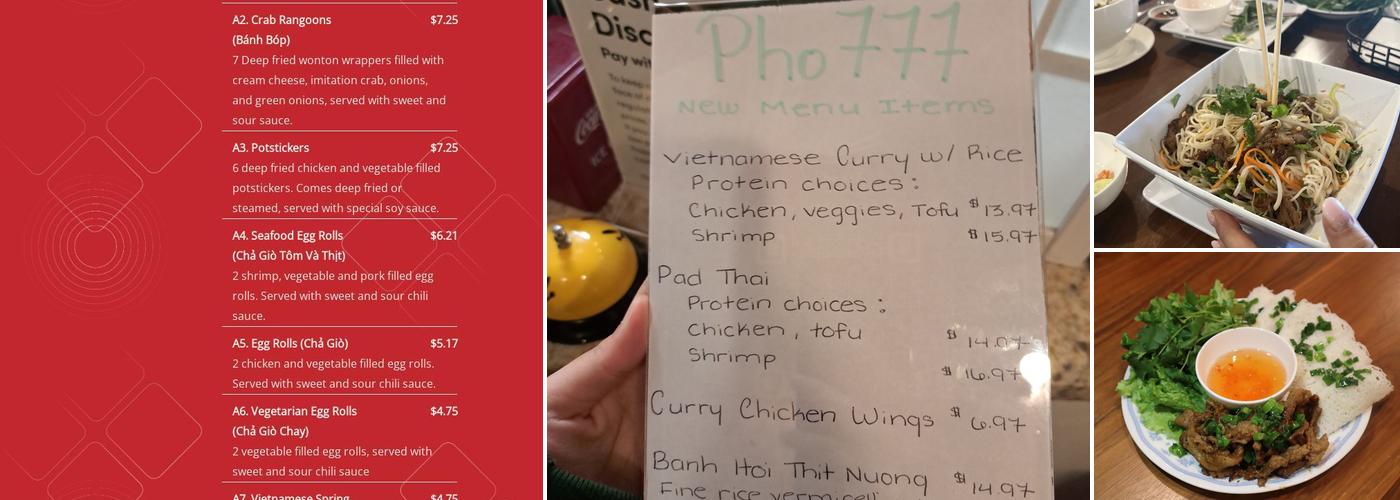 A2. Crab Rangoons $7.25
(Bánh Bóp)
7 Deep fried wonton wrappers filled with
cream cheese, imitation crab, onions,
and green onions, served with sweet and
sour sauce.
A3. Potstickers $7.25
6 deep fried chicken and vegetable filled
potstickers. Comes deep fried or
steamed, served with special soy sauce.
A4. Seafood Egg Rolls $6.21
(Chả Giò Tôm Và Thịt)
2 shrimp, vegetable and pork filled egg
rolls. Served with sweet and sour chili
sauce.
A5. Egg Rolls (Chả Giò) $5.17
2 chicken and vegetable filled egg rolls.
Served with sweet and sour chili sauce.
A6. Vegetarian Egg Rolls $4.75
(Chả Giò Chay)
2 vegetable filled egg rolls, served with
sweet and sour chili sauce
A7. Vietnamese Spring $4.75
Disc
Pay wit
Pho 777
New Menu Items
Vietnamese Curry w/ Rice
Protein choices:
Chicken, veggies, Tofu $13.97
Shrimp $15.97
Pad Thai
Protein choices:
chicken, tofu $14.97
Shrimp $16.97
Curry Chicken Wings $6.97
Banh Hoi Thit Nuong $14.97
Fine rice vermicelli